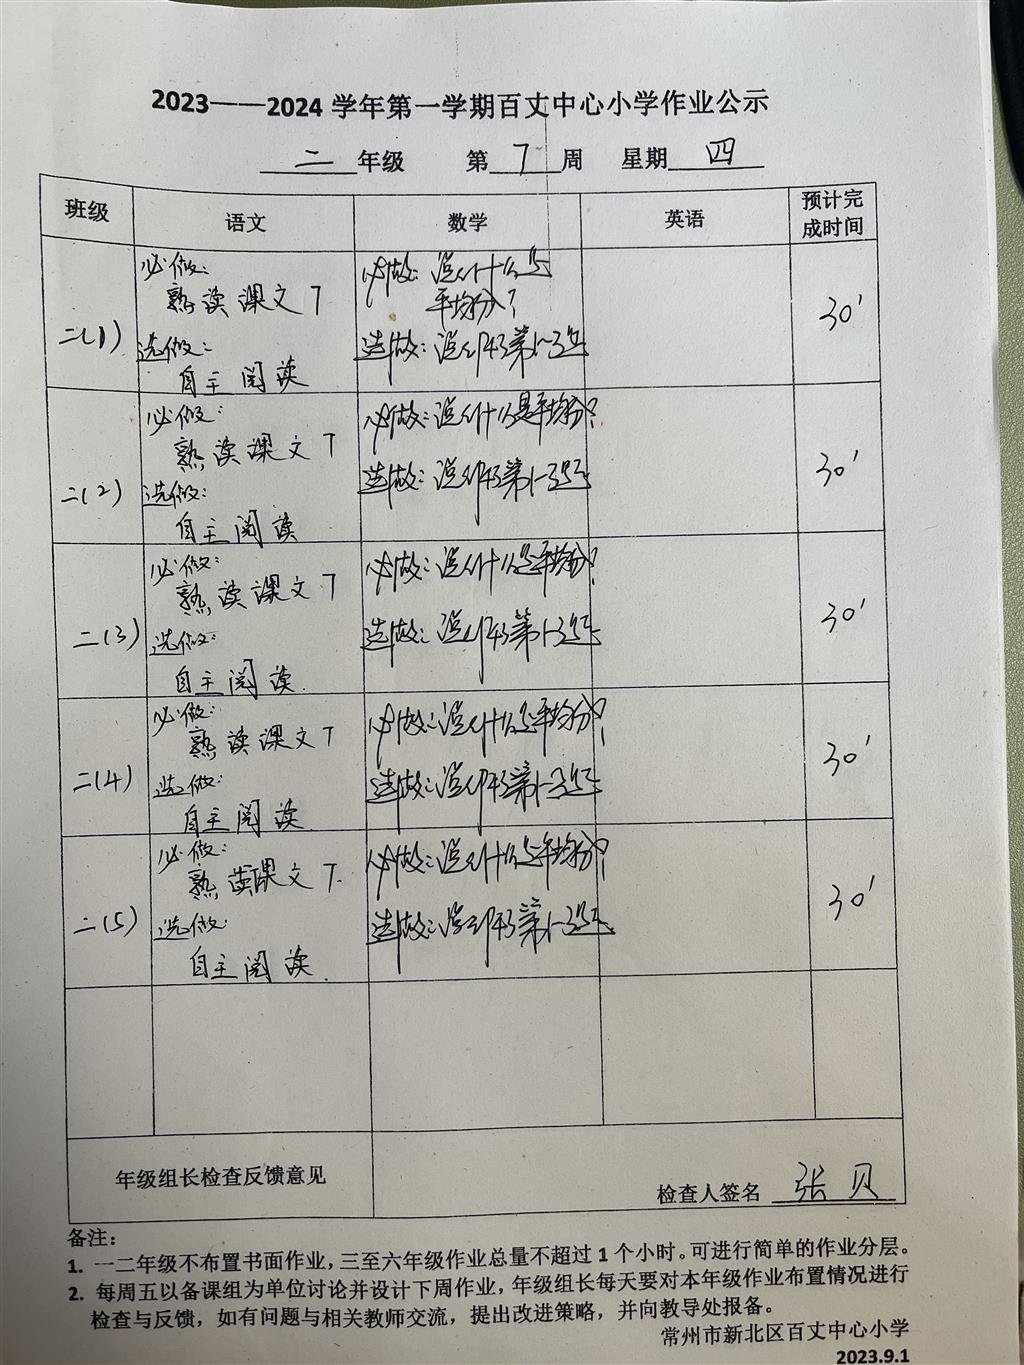 2023——2024 学年第一学期百丈中心小学作业公示
二 年级 第 7 周 星期 四
班级 语文 数学 英语 预计完成时间
二(1)
必做：
熟读课文7
选做：
自主阅读
必做：说说什么是
平均分？
选做：说说P43第1-3题
30'
二(2)
必做：
熟读课文7
选做：
自主阅读
必做：说说什么是平均分？
选做：说说P43第1-3题
30'
二(3)
必做：
熟读课文7
选做：
自主阅读.
必做：说说什么是平均分？
选做：说说P43第1-3题
30'
二(4)
必做：
熟读课文7
选做：
自主阅读
必做：说说什么是平均分？
选做：说说P43第1-3题
30'
二(5)
必做：
熟读课文7.
选做：
自主阅读.
必做：说说什么是平均分？
选做：说说P43第1-3题
30'
年级组长检查反馈意见
检查人签名 张贝
备注：
1. 一二年级不布置书面作业，三至六年级作业总量不超过 1 个小时。可进行简单的作业分层。
2. 每周五以备课组为单位讨论并设计下周作业，年级组长每天要对本年级作业布置情况进行
检查与反馈，如有问题与相关教师交流，提出改进策略，并向教导处报备。
常州市新北区百丈中心小学
2023.9.1